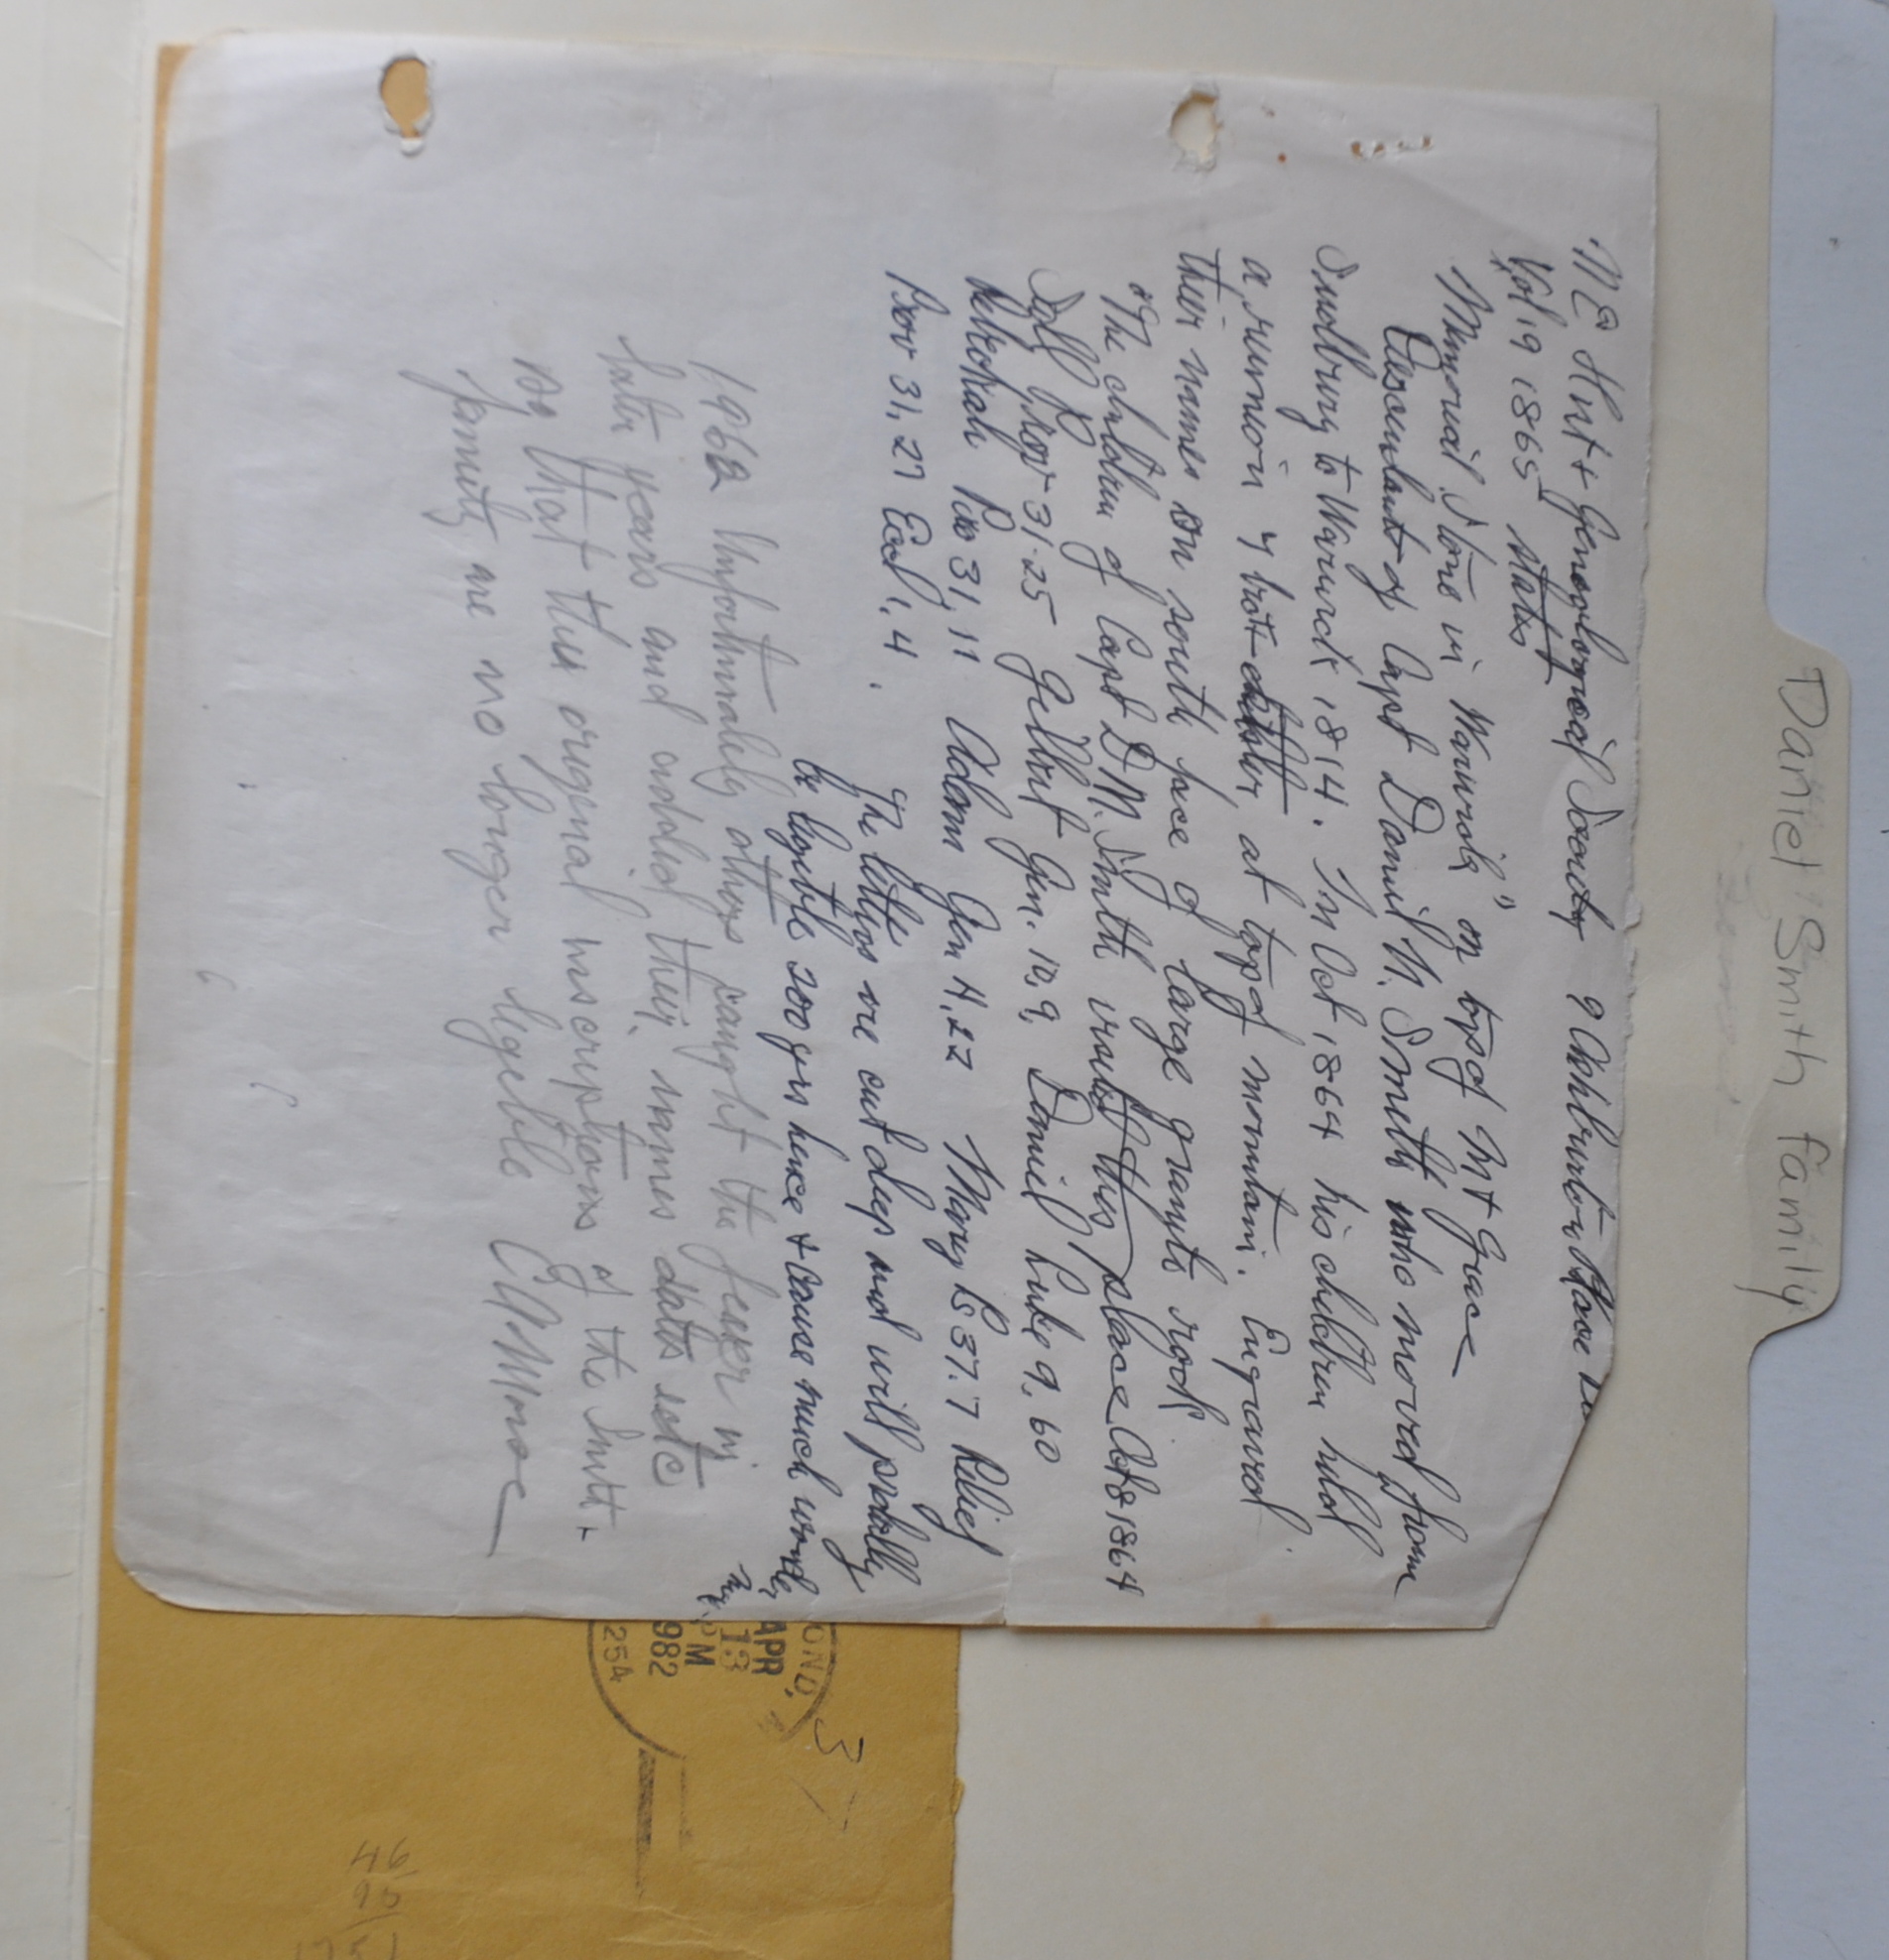 Daniel Smith family
N E Hist & Genealogical Society 9 Ashburton Place
Vol 19 1865 states
Memorial Stone in Warwick" on top of Mt Grace
Descendants of Capt Daniel N. Smith who moved from
Sudbury to Warwick 1814. In Oct 1864 his children held
a reunion 4 brot at top of mountain. Engraved
their names on south face of large granyte rock
"The children of Capt D. N. Smith visited this place Oct 8 1864
Sally Prov 31-25 Gellirt Gen. 10, 9, Daniel Luke 9, 60
Deborah Pro 31, 11 Adam Gen 4, 22 Mary Ps 37. 7 Relief
Prov 31, 27 Eccl, 1, 4.
The letters are cut deep and will probally
be legible 200 yrs hence & cause much wonder,
1962 Unfortunately others caught the fever in
later years and added their names dates etc
so that the original inscriptions of the Smith
family are no longer legeble
OND,
APR
13
PM
1982
254
3
46
90